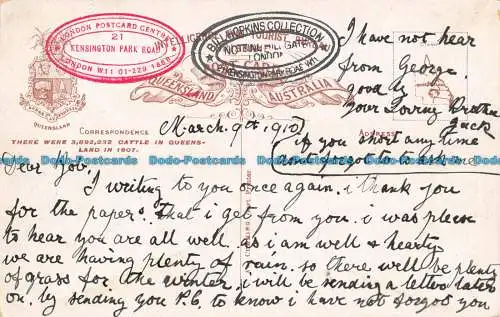 LONDON POSTCARD CENTRE
21
KENSINGTON PARK ROAD
LONDON W11 01-229 1888
BILL HOPKINS COLLECTION
NOTTING HILL GATE
LONDON
KENSINGTON PK ROAD W11
INTELLIGENCE TOURIST
CARD
QUEENSLAND AUSTRALIA
QUEENSLAND
CORRESPONDENCE
THERE WERE 3,892,232 CATTLE IN QUEENS-
LAND IN 1907.
ADDRESS
March. 9th. 1910
I have not hear
from George.
good by
your Loving Brother
Jack
if you short any time
dont forgot to to ask
Dear
I writing to you once again. i thank you
for the papers. That i get from you. i was please
to hear you are all well. as i am well & hearty
we are having plenty of rain. so there will be plenty
of grass for the winter. i will be sending a letter later
on. by sending you P.C. to know i have not forgot you